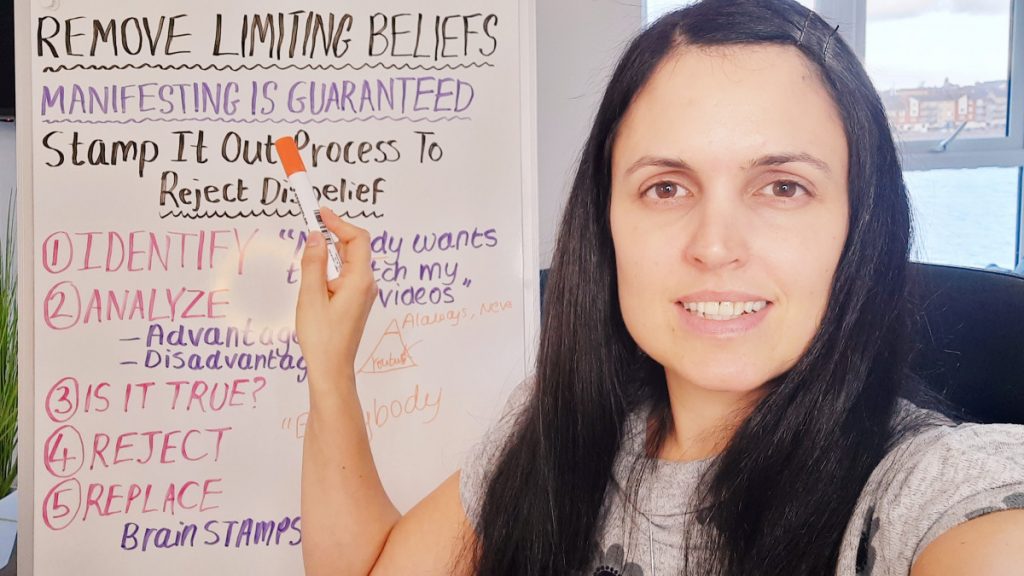 REMOVE LIMITING BELIEFS
MANIFESTING IS GUARANTEED
Stamp It Out Process To
Reject Disbelief
① IDENTIFY
wants
my
videos"
② ANALYZE
- Advantage
- Disadvantag
Always, Neve
③ IS IT TRUE?
④ REJECT
⑤ REPLACE
Brain STAMPS